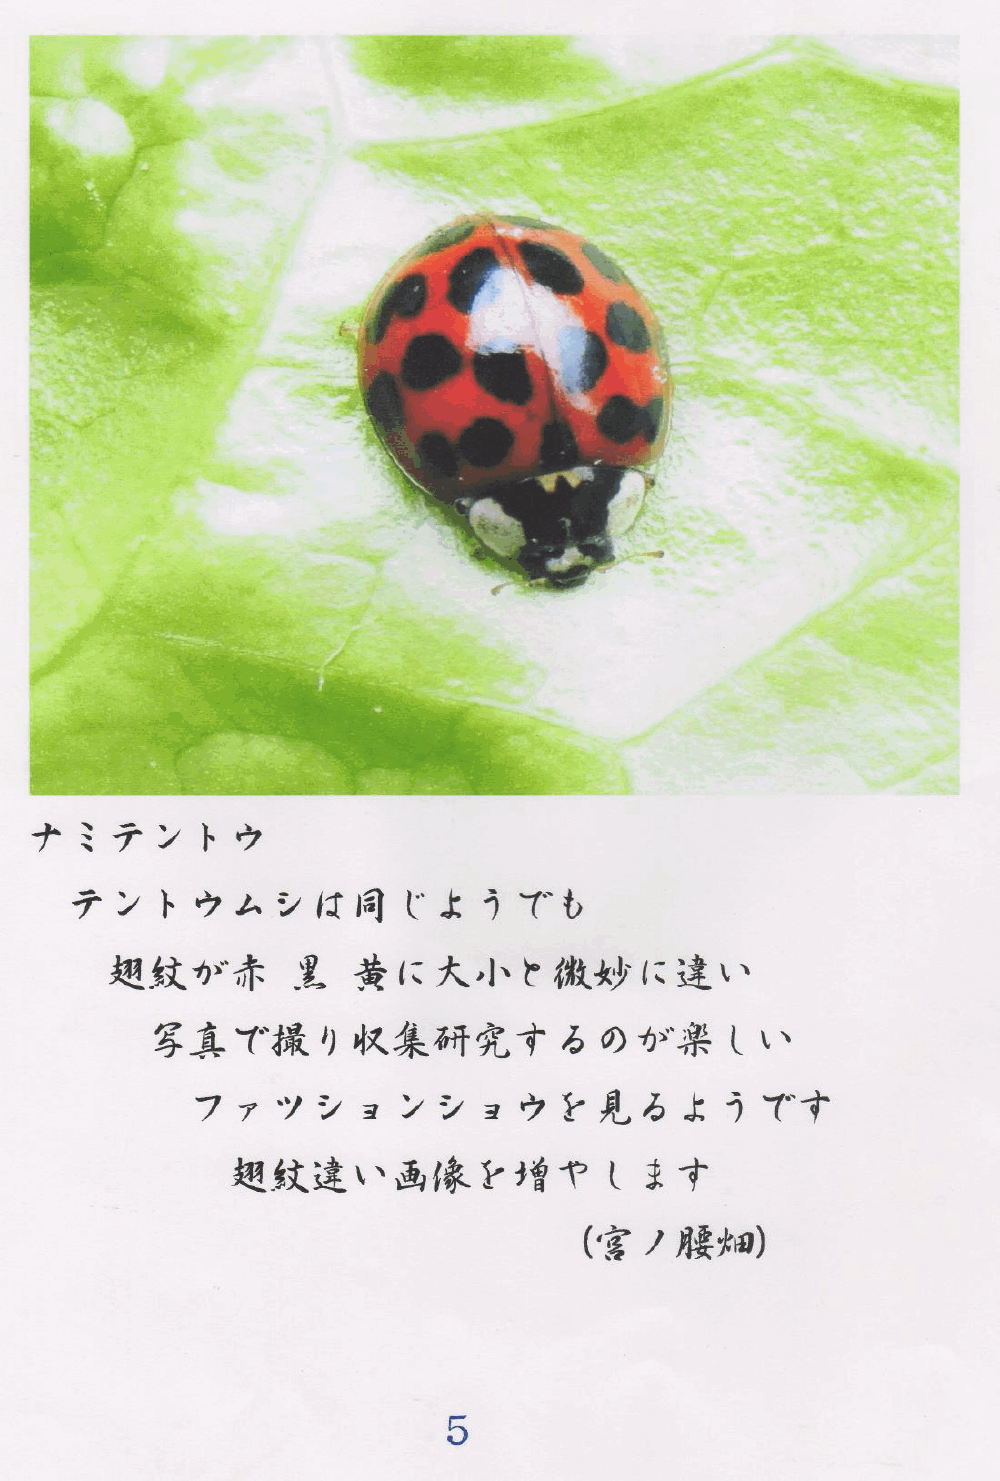 ナミテントウ
テントウムシは同じようでも
翅紋が赤 黒 黄に大小と微妙に違い
写真で撮り収集研究するのが楽しい
ファツションショウを見るようです
翅紋違い画像を増やします
(宮ノ腰畑)
5